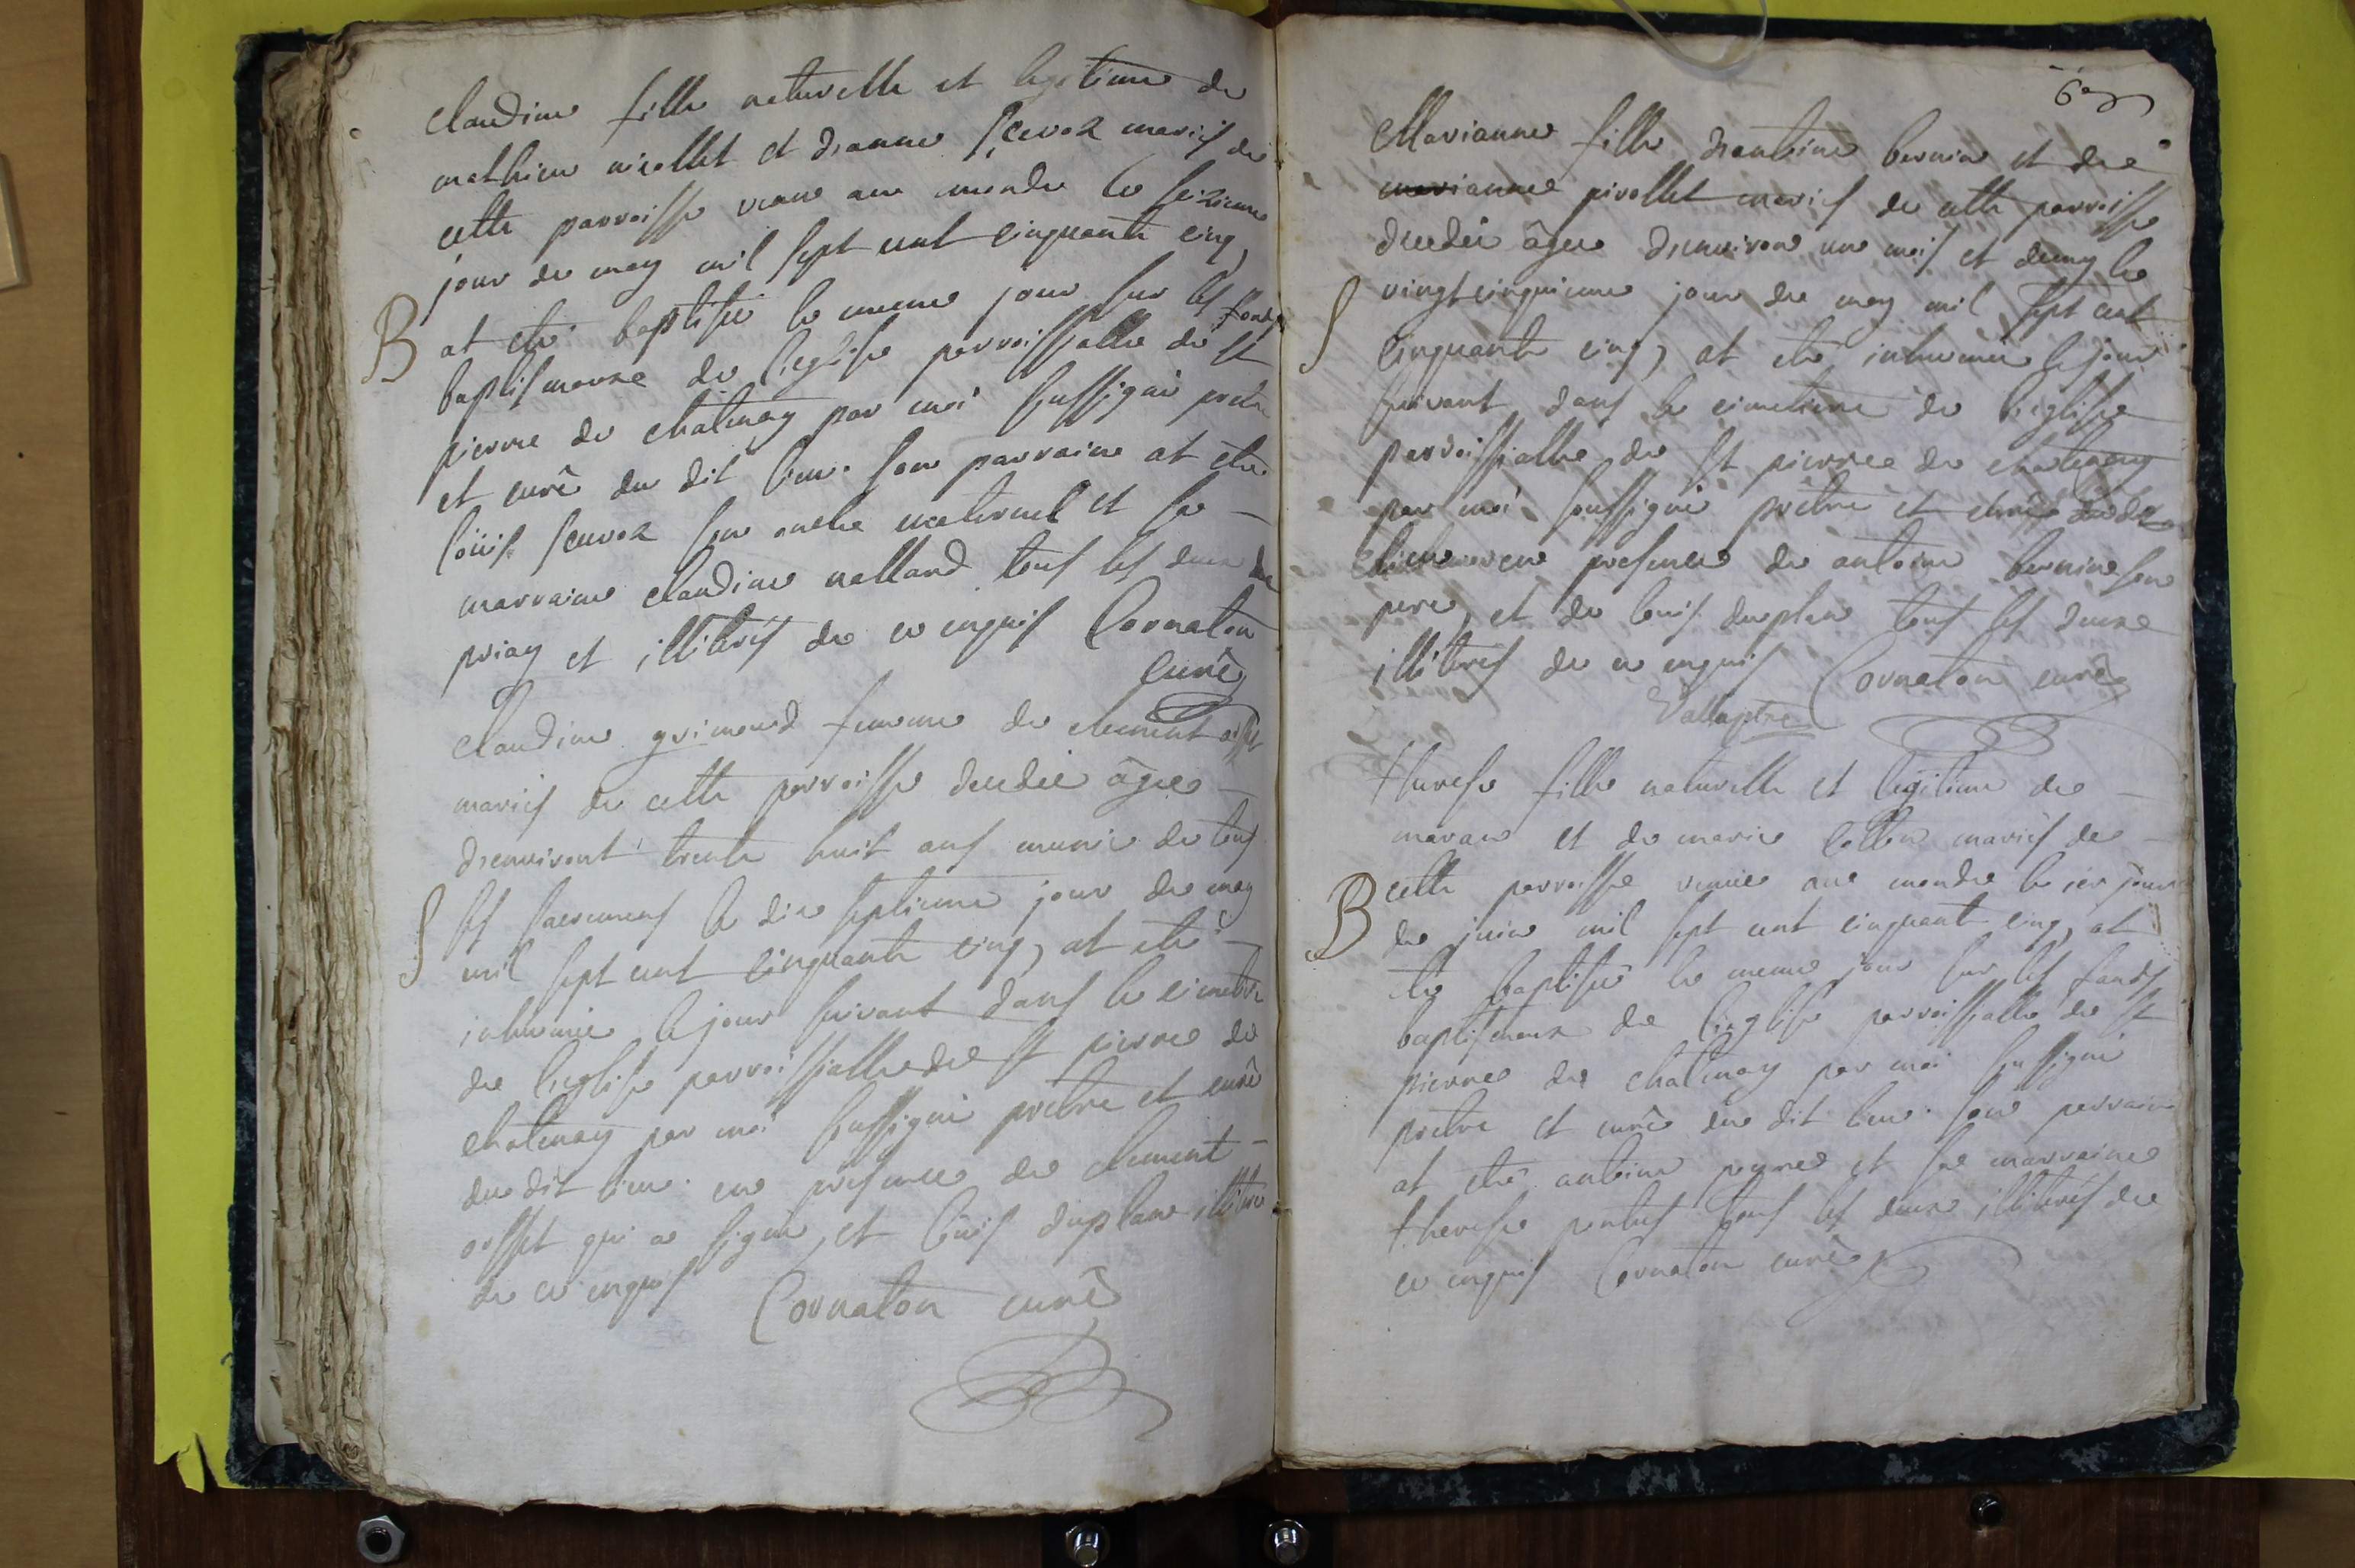 Claudine fille naturelle et legitime de
mathieu nicollet et d'anne sceuoz mariés de
cette parroisse venue au monde le seizieme
jour de may mil sept cent cinquante cinq
B at eté baptisée le meme jour sur les fonds
baptismaux de l'eglise parroissialle de st
pierre de chatenay par moi soussigné pretre
et curé du dit lieu. son parraine at eté
loüis sceuoz son oncle maternel et sa
marraine claudine nallard tous les deux de
priay et illiterés de ce enquis Cornaton
curé
Claudine grimoud femme de clement
mariés de cette parroisse decedée âgée
d'environt trente huit ans munie de tous
S les sacrements le dix septieme jour de may
mil sept cent cinquante cinq, at eté
inhumée le jour suivant dans le cimetiere
de l'eglise parroissialle de st pierre de
chatenay par moi soussigné pretre et curé
du dit lieu. en presence de clement
qui a signé, et loüis duplan illiteré
de ce enquis Cornaton curé
6
Marianne fille d'antoine bernin et de
marianne pirollet mariés de cette parroisse
decedée âgée d'environ un mois et demy le
S vingt cinquieme jour de may mil sept cent
cinquante cinq, at eté inhumée le jour
suivant dans le cimetiere de l'eglise
parroissialle de st pierre de chatenay
par moi soussigné prêtre et curé du dit
lieu en presence de antoine bernin son
pere, et de louis duplan tous les deux
illiterés de ce enquis Cornaton curé
Therese fille naturelle et legitime de
maran et de marie collon mariés de
B cette parroisse venue au monde le 1er jour
de juin mil sept cent cinquante cinq, at
eté baptisée le meme jour sur les fonds
baptismaux de l'eglise parroissialle de st
pierre de chatenay par moi soussigné
pretre et curé du dit lieu. son parraine
at eté antoine et sa marraine
therese tous les deux illiterés de
ce enquis Cornaton curé